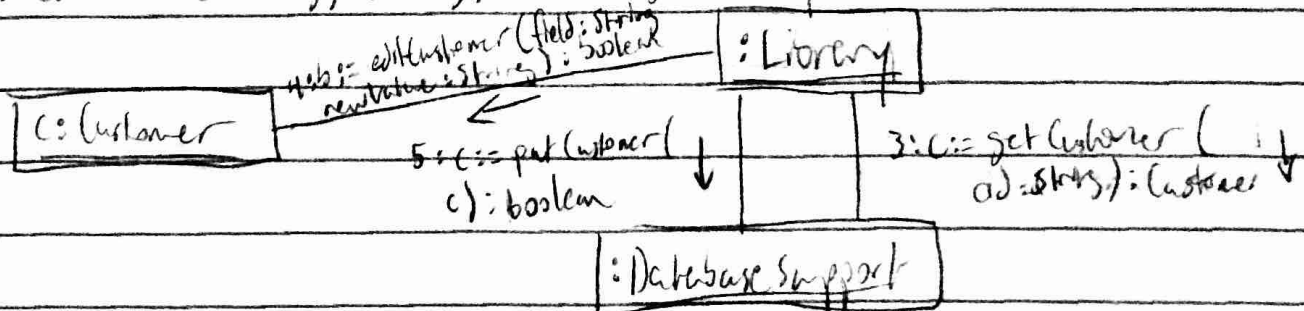 :Library
4:b:= editCustomer(field:String
newValue:String):boolean
C:Customer
5:c:= putCustomer(
c):boolean
3:c:= getCustomer(
:String):Customer
:DatabaseSupport